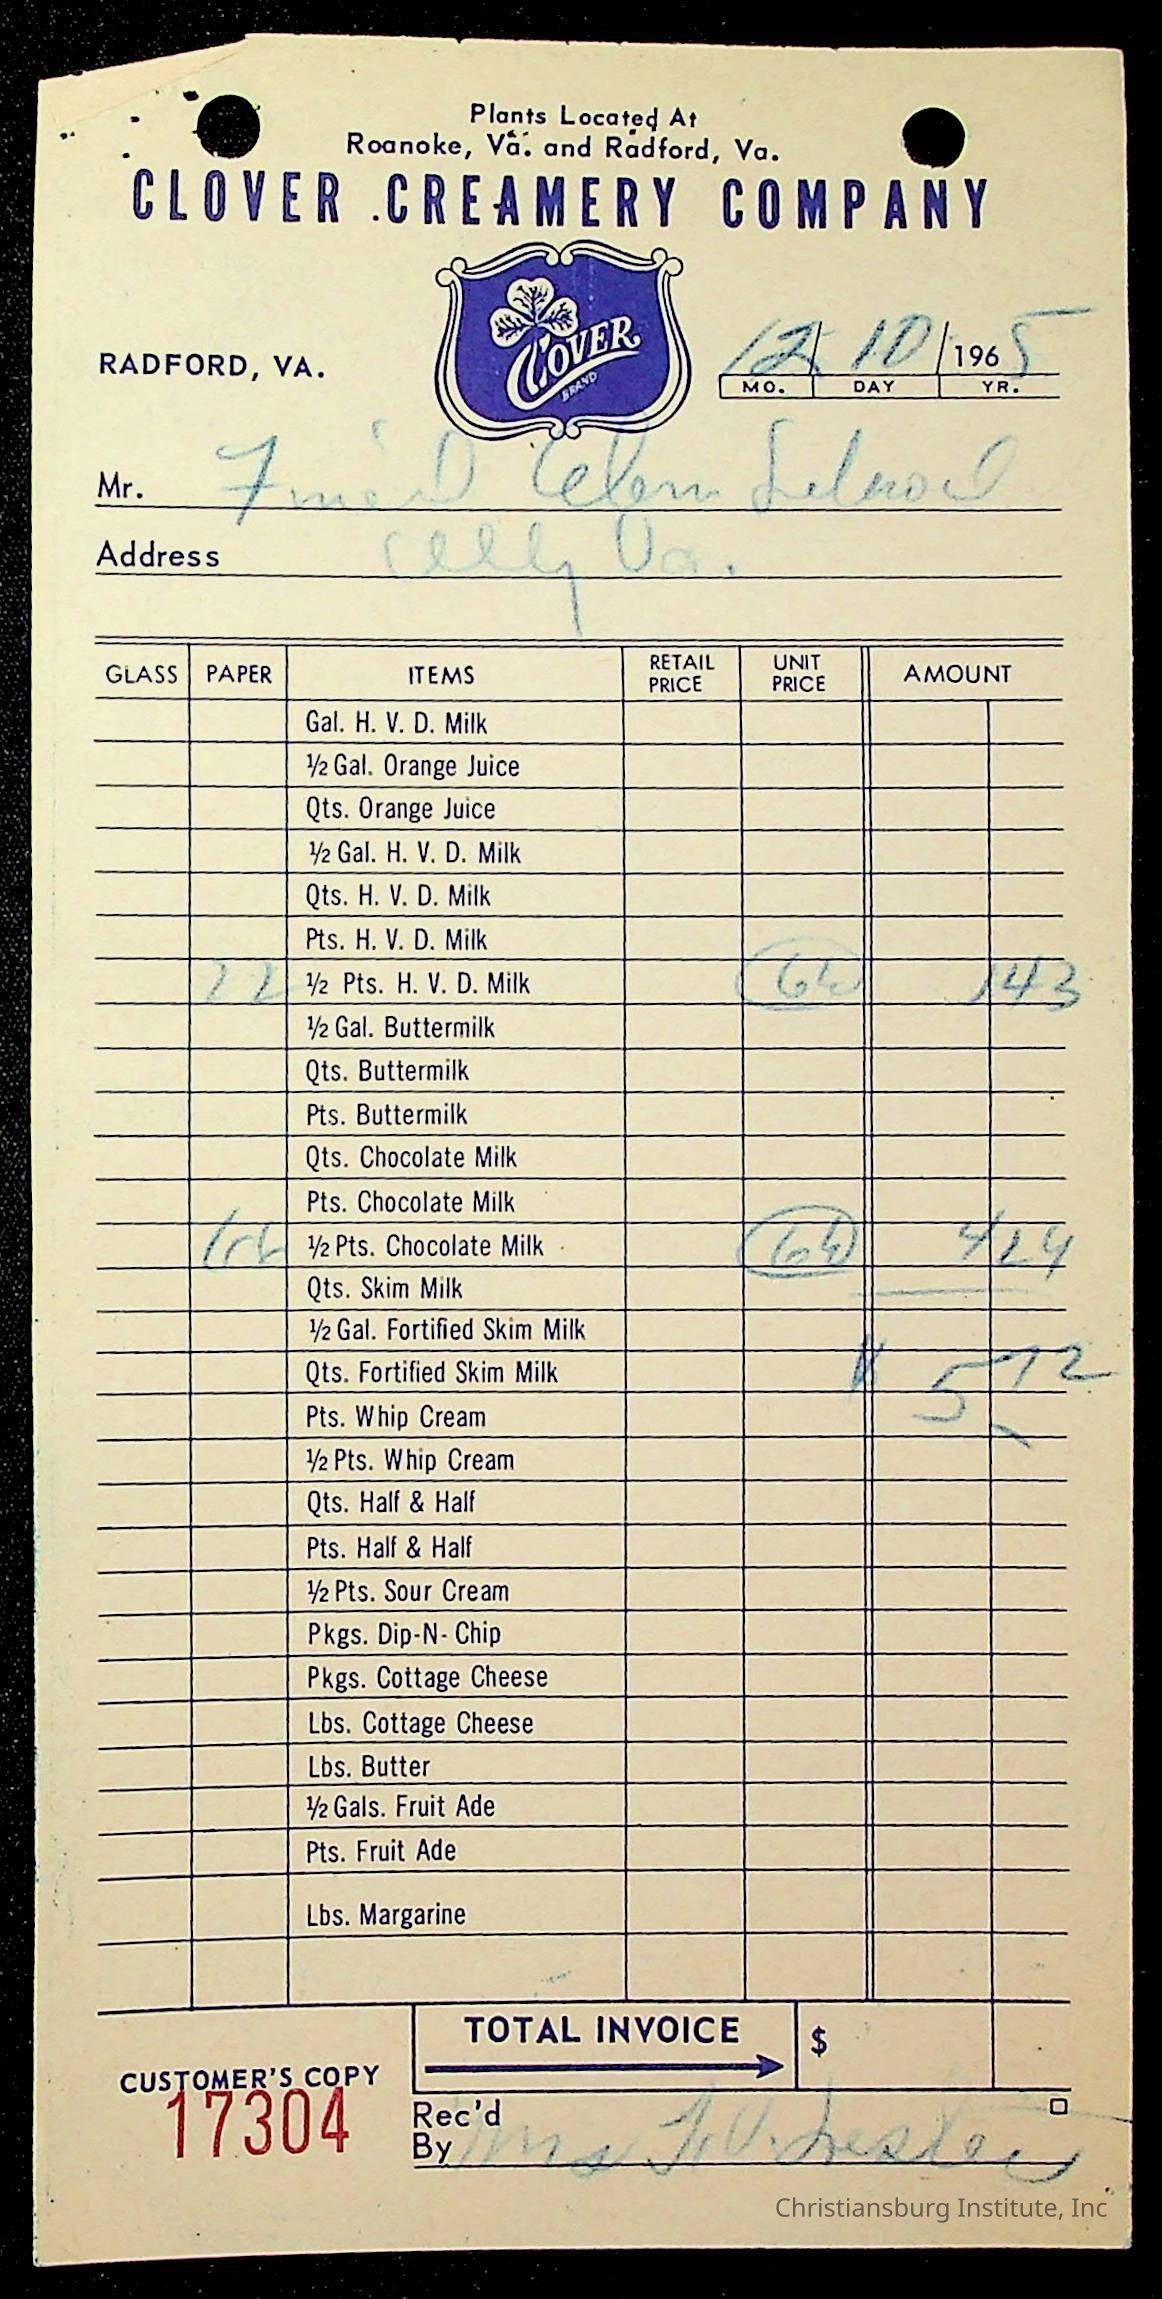 Plants Located At
Roanoke, Va. and Radford, Va.
CLOVER CREAMERY COMPANY
CLOVER
BRAND
RADFORD, VA.
12 / 10 / 1965
MO. DAY YR.
Mr. Elem School
Address Va.
GLASS PAPER ITEMS RETAIL PRICE UNIT PRICE AMOUNT
Gal. H. V. D. Milk
½ Gal. Orange Juice
Qts. Orange Juice
½ Gal. H. V. D. Milk
Qts. H. V. D. Milk
Pts. H. V. D. Milk
22 ½ Pts. H. V. D. Milk 6½ 1 43
½ Gal. Buttermilk
Qts. Buttermilk
Pts. Buttermilk
Qts. Chocolate Milk
Pts. Chocolate Milk
½ Pts. Chocolate Milk 6½ 4 29
Qts. Skim Milk
½ Gal. Fortified Skim Milk
Qts. Fortified Skim Milk
$ 5 72
Pts. Whip Cream
½ Pts. Whip Cream
Qts. Half & Half
Pts. Half & Half
½ Pts. Sour Cream
Pkgs. Dip-N-Chip
Pkgs. Cottage Cheese
Lbs. Cottage Cheese
Lbs. Butter
½ Gals. Fruit Ade
Pts. Fruit Ade
Lbs. Margarine
TOTAL INVOICE $
CUSTOMER'S COPY
17304
Rec'd
By Mrs
Christiansburg Institute, Inc